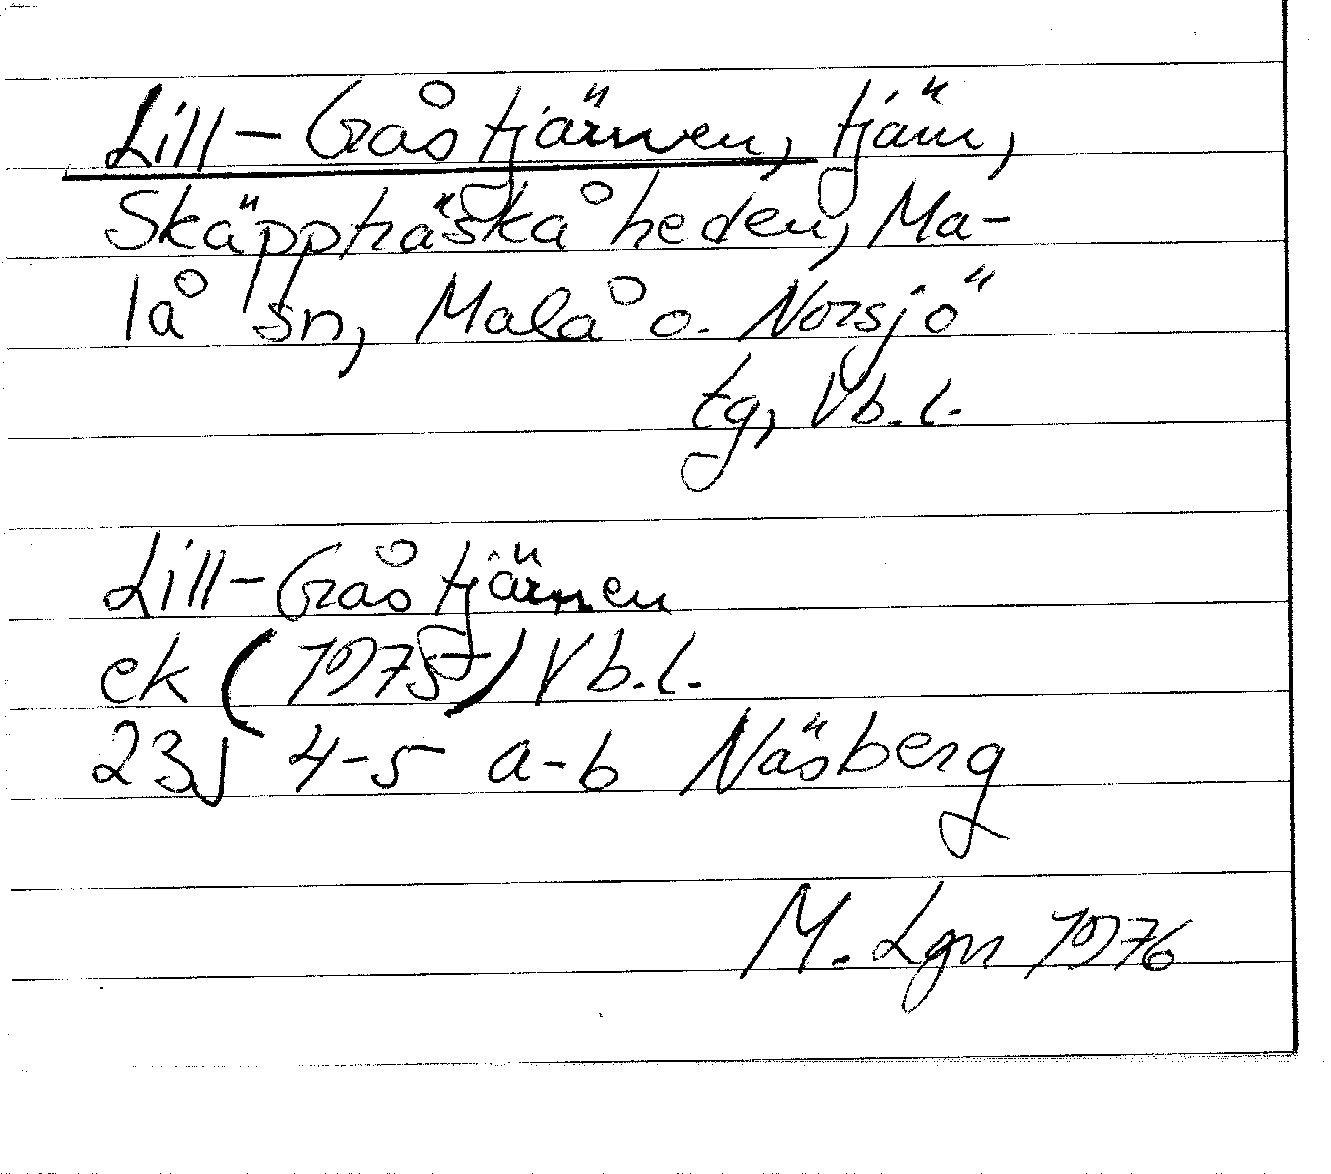 Lill-Gåstjärnen, tjärn,
Skäppträskåheden, Ma-
lå sn, Malå o. Norsjö
tg, Vb.l.
Lill-Gåstjärnen
ek (1975) Vb.l.
23J 4-5 a-b Näsberg
M. Lgn 1976